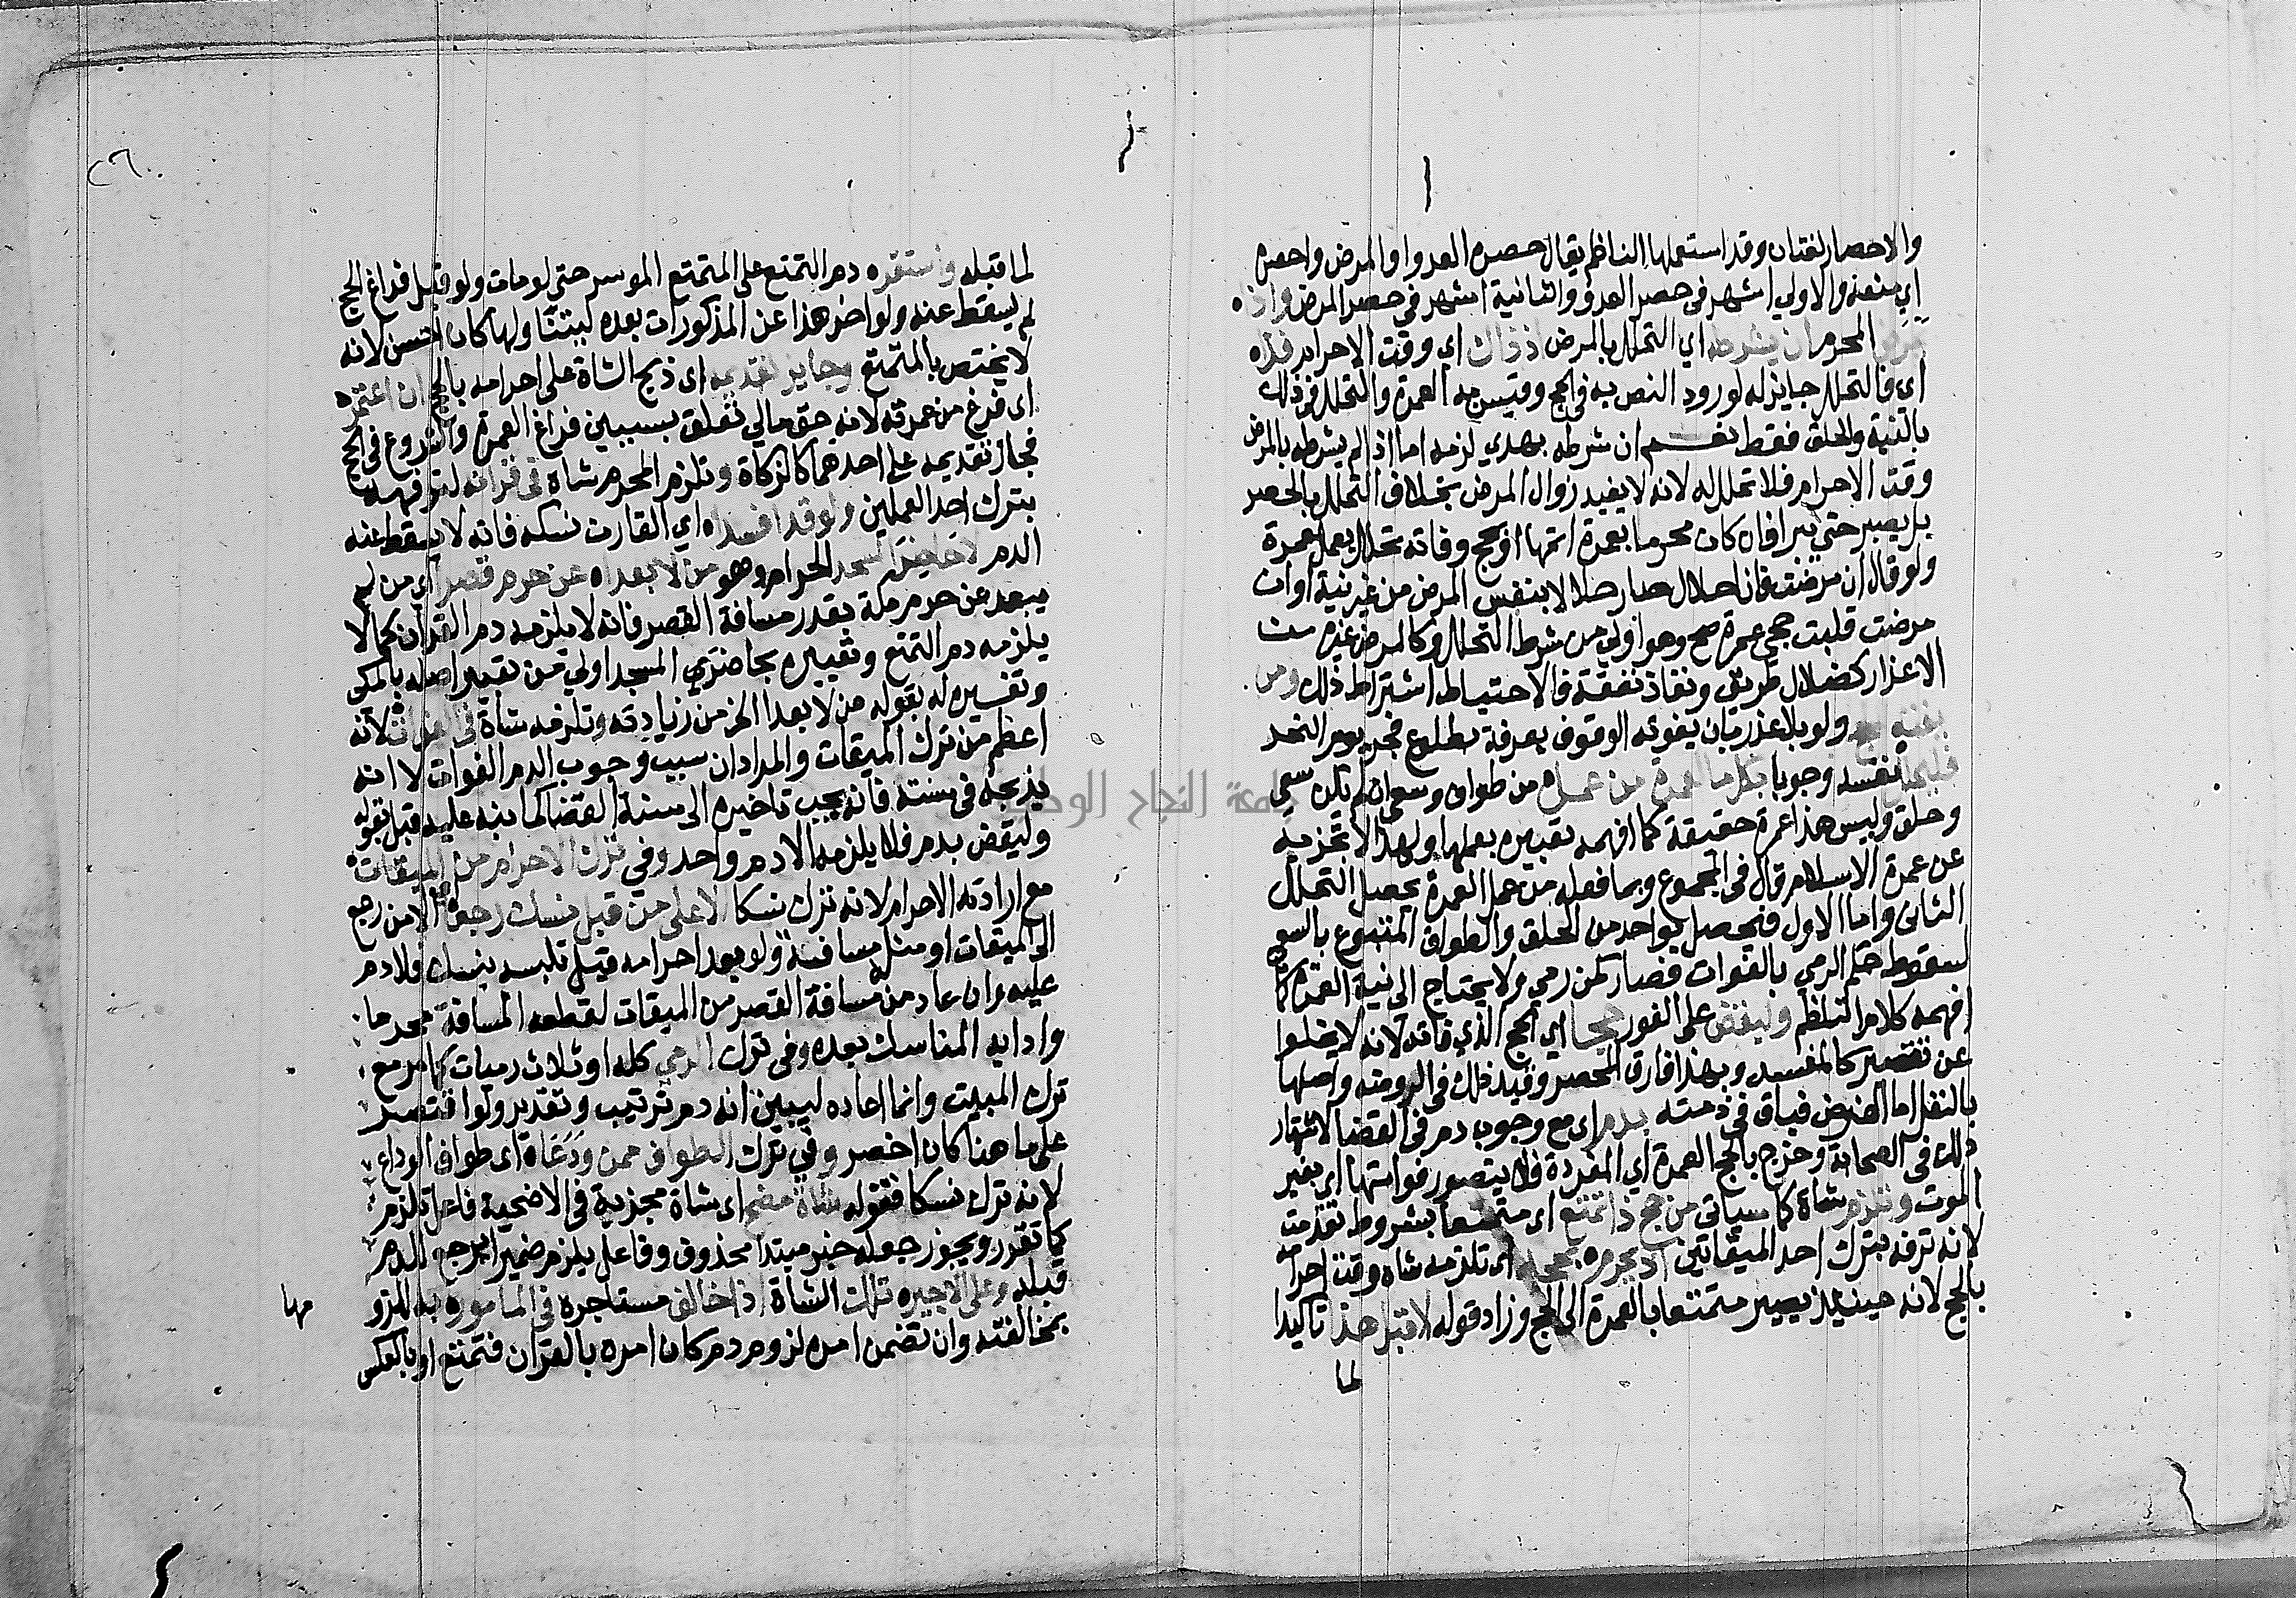 والاحصار لغتان وقد استعملها الناظم يقال حصره العدو او المرض واحصره
اي منعه والاولي اشهر في حصر العدو والثانية اشهر في حصر المرض واذا
المحرم ان يشرطه اي التحلل بالمرض اذ ذاك اي وقت الاحرام فذاه
اي فالتحلل جايز له لورود النص به في الحج وقيس به العمرة والتحلل في ذلك
بالنية والحلق فقط نعم ان شرطه بهدي لزمه اما اذا لم يشرطه بالمرض
وقت الاحرام فلا تحلل له لانه لا يفيد زوال المرض بخلاف التحلل بالحصر
بل يصبر حتي يبرا فان كان محرما بعمرة اتمها او بحج وفاته تحلل بعمل عمرة
ولو قال ان مرضت فانا حلال صار حلالا بنفس المرض من غير نية او ان
مرضت قلبت حجي عمرة صح وهو اولي من شرط التحلل وكالمرض غيره من
الاعذار كضلال طريق ونفاذ نفقة فالاحتياط اشتراط ذلك ومن
يفته الحج ولو بلا عذر بان يفوته الوقوف بعرفة بطلوع فجر يوم النحر
فليحل نفسه وجوبا بكل ما العمرة من عمل من طواف وسعي ان لم يكن سعي
وحلق وليس هذا عمرة حقيقة كما افهمه تعبيره بعملها ولهذا لا تجزيه
عن عمرة الاسلام قال في المجموع وبما فعله من عمل العمرة يحصل التحلل
الثاني واما الاول فيحصل بواحد من الحلق والطواف المتبوع بالسعي
لسقوط حكم الرمي بالفوات فصار كمن رمي ولا يحتاج الي نية العمرة كما
افهمه كلام الناظم وليقض علي الفور حجا اي الحج الذي فاته لانه لا يخلوا
عن تقصير كالمفسد وبهذا فارق المحصر وقيد ذلك في الروضة واصلها
بالنفل اما الفرض فباق في ذمته بدم اي مع وجوب دم في القضا لاشتهار
ذلك في الصحابة وخرج بالحج العمرة اي المفردة فلا يتصور فواتها اي بغير
الموت وتلزم شاة كما سياتي من حج ذا تمتع اي متمتعا بشروط تقدمت
لانه ترفه بترك احد الميقاتين اذ يحرم بحجه اي تلزمه شاه وقت احرامه
بالحج لانه حينئذ يصير متمتعا بالعمرة الي الحج وزاد قوله لا قبل هذا تاكيدا
لما
٢٦٠
لما قبله واستقره دم التمتع علي المتمتع الموسر حتي لو مات ولو قبل فراغ الحج
لم يسقط عنه ولو اخر هذا عن المذكورات بعده لبينا ولها كان احسن لانه
لا يختص بالمتمتع وجايز تقديمه اي ذبح الشاة علي احرامه بالحج ان اعتمره
اي فرغ من عمرته لانه حق مالي تعلق بسببين فراغ العمرة والشروع في الحج
فجاز تقديمه علي احدهما كالزكاة وتلزم المحرم شاة في قرانه لترفهه
بترك احد العملين ولو قد افسداه اي القارن نسكه فانه لا يسقط عنه
الدم لا حاضر المسجد الحرام وهو من لا بعداه عن حرم قصر اي من لم
يبعد عن حرم مكة بقدر مسافة القصر فانه لا يلزمه دم القران كما لا
يلزمه دم التمتع وتعبيره بحاضري المسجد اولي من تعبير اصله بالمكي
وتفسيره له بقوله من لا بعد الخ من زيادته وتلزمه شاة في الفوات لانه
اعظم من ترك الميقات والمراد ان سبب وجوب الدم الفوات لا انه
يذبحه في سنته فانه يجب تاخيره الي سنة القضا كما نبه عليه قبل بقوله
وليقض بدم فلا يلزمه الا دم واحد وفي ترك الاحرام من الميقات
مع ارادته الاحرام لانه ترك نسكا لا علي من قبل نسك رجعا الا من رجع
الي الميقات او مثل مسافته ولو بعد احرامه قبل تلبسه بنسك فلا دم
عليه وان عاد من مسافة القصر من الميقات لقطعه المسافة محرما
وادايه المناسك بعده وفي ترك الرمي كله او ثلاث رميات كما مر مع
ترك المبيت وانما اعاده ليبين انه دم ترتيب وتقدير ولو اقتصر
علي ما هنا كان اخصر وفي ترك الطواف ممن ودعاه اي طواف الوداع
لانه ترك نسكا فقوله شاة مضح اي شاة مجزية في الاضحية فاعل تلزم
كما تقرر ويجوز جعله خبر مبتدا محذوف وفاعل يلزم ضميرا يرجع للدم
قبله وعلي الاجيره تلك الشاة اذا خالف مستاجره في المامور به للزو
مها
بمخالفته وان تضمن امره لزوم دم كان امره بالقران فتمتع او بالعكس
جامعة النجاح الوطنية